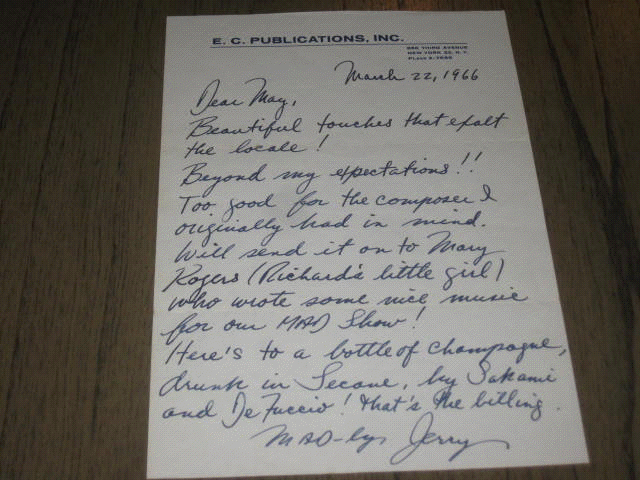 E. C. PUBLICATIONS, INC.
850 THIRD AVENUE
NEW YORK 22, N. Y.
PLaza 2-7685
March 22, 1966
Dear May,
Beautiful touches that exalt
the locale!
Beyond my expectations!!
Too good for the composer I
originally had in mind.
Will send it on to Mary
Rogers (Richard's little girl)
who wrote some nice music
for our MAD Show!
Here's to a bottle of champagne,
drunk in Secane, by Sakami
and DeFuccio! That's the billing.
MAD-ly, Jerry